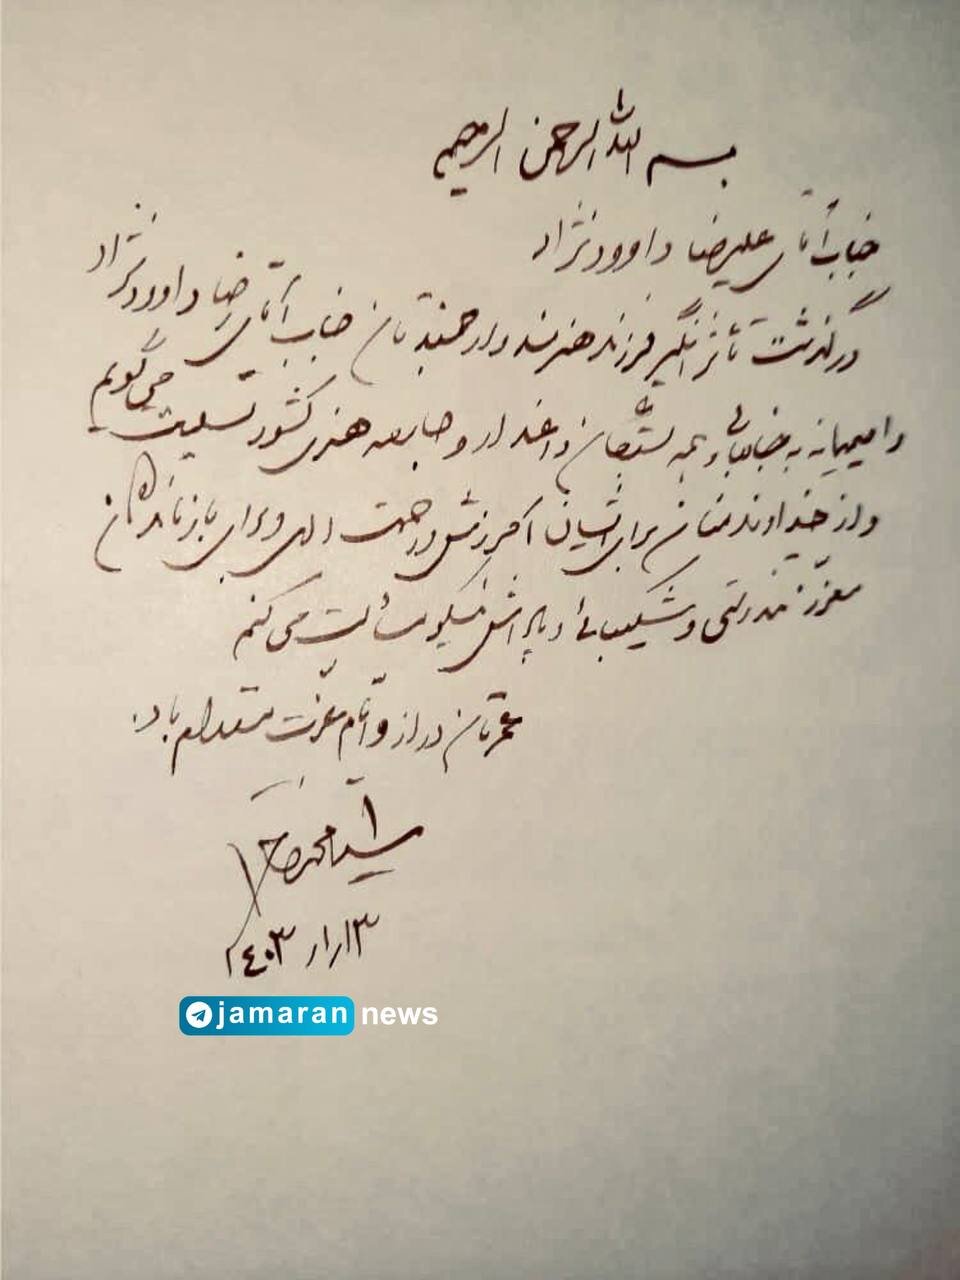 بسم الله الرحمن الرحیم
جناب آقای علیرضا داوودنژاد
درگذشت تأثرانگیز فرزند هنرمند و ارجمندتان جناب آقای رضا داوودنژاد
را صمیمانه به جنابعالی و همه بستگان داغدار و جامعه هنری کشور تسلیت می‌گویم
و از خداوند منان برای ایشان آمرزش و رحمت الهی و برای بازماندگان
معزز تندرستی و شکیبائی و پاداش نیکو مسئلت می‌کنم
عمرتان دراز و ایام عزت مستدام باد.
سید محمد خاتمی
۱۳/۱/۱۴۰۳
jamaran news